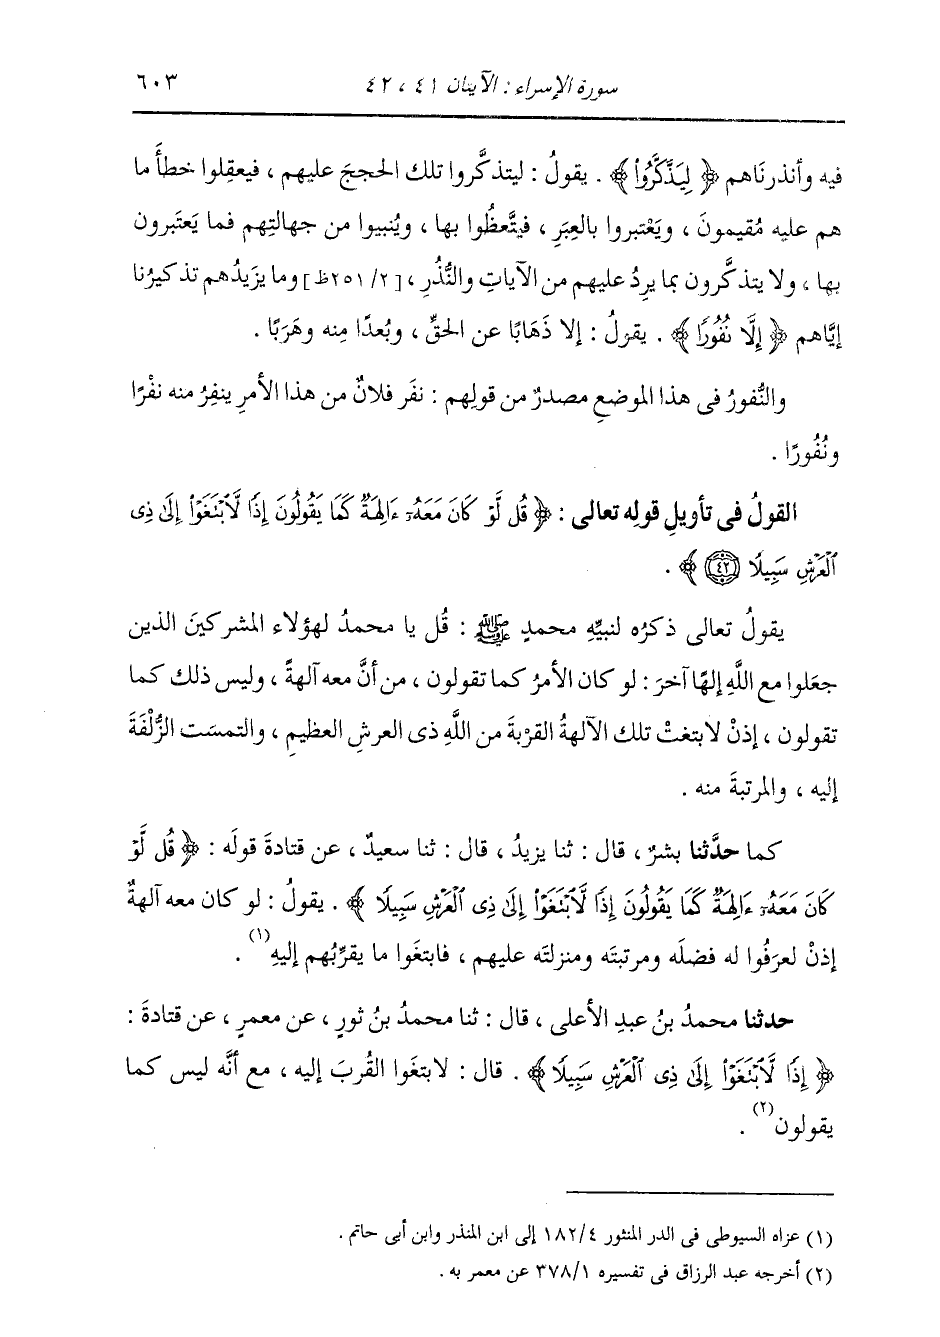 سورة الإسراء : الآيتان ٤١ ، ٤٢
٦٠٣
فيه وأنذرنَاهم ﴿ لِيَذَّكَّرُوا۟ ﴾ . يقولُ : ليتذكَّروا تلك الحججَ عليهم ، فيعقِلوا خطأَ ما
هم عليه مُقيمونَ ، ويَعْتبروا بالعِبَرِ ، فيتَّعظُوا بها ، ويُنيبوا من جهالتِهم فما يَعتَبرون
بها ، ولا يتذكَّرون بما يرِدُ عليهم من الآياتِ والنُّذُرِ ، [٢٥١/٢ظ] وما يزيدُهم تذكيرُنا
إيَّاهم ﴿ إِلَّا نُفُورًا ﴾ . يقولُ : إلا ذهَابًا عن الحقِّ ، وبُعدًا مِنه وهَرَبًا .
والنُّفورُ فى هذا الموضعِ مصدرٌ من قولِهم : نفَر فلانٌ من هذا الأمرِ ينفِرُ منه نفْرًا
ونُفُورًا .
القولُ فى تأويلِ قولِه تعالى : ﴿ قُل لَّوْ كَانَ مَعَهُۥٓ ءَالِهَةٌ كَمَا يَقُولُونَ إِذًا لَّٱبْتَغَوْا۟ إِلَىٰ ذِى
ٱلْعَرْشِ سَبِيلًا ٤٢ ﴾ .
يقولُ تعالى ذكرُه لنبيِّه محمدٍ ﷺ : قُل يا محمدُ لهؤلاء المشركينَ الذين
جعَلوا مع اللَّهِ إلهًا آخرَ : لو كان الأمرُ كما تقولون ، من أنَّ معه آلهةً ، وليس ذلك كما
تقولون ، إذنْ لابتغتْ تلك الآلهةُ القرْبةَ من اللَّهِ ذى العرشِ العظيمِ ، والتمسَت الزُّلْفَةَ
إليه ، والمرتبةَ منه .
كما حدَّثنا بشرٌ ، قال : ثنا يزيدُ ، قال : ثنا سعيدٌ ، عن قتادةَ قولَه : ﴿ قُل لَّوْ
كَانَ مَعَهُۥٓ ءَالِهَةٌ كَمَا يَقُولُونَ إِذًا لَّٱبْتَغَوْا۟ إِلَىٰ ذِى ٱلْعَرْشِ سَبِيلًا ﴾ . يقولُ : لو كان معه آلهةٌ
إذنْ لعرَفُوا له فضلَه ومرتبتَه ومنزلتَه عليهم ، فابتغَوا ما يقرِّبُهم إليهِ(١) .
حدثنا محمدُ بنُ عبدِ الأعلى ، قال : ثنا محمدُ بنُ ثورٍ ، عن معمرٍ ، عن قتادةَ :
﴿ إِذًا لَّٱبْتَغَوْا۟ إِلَىٰ ذِى ٱلْعَرْشِ سَبِيلًا ﴾ . قال : لابتغَوا القُربَ إليه ، مع أنَّه ليس كما
يقولون(٢) .
(١) عزاه السيوطى فى الدر المنثور ١٨٢/٤ إلى ابن المنذر وابن أبى حاتم .
(٢) أخرجه عبد الرزاق فى تفسيره ٣٧٨/١ عن معمر به .